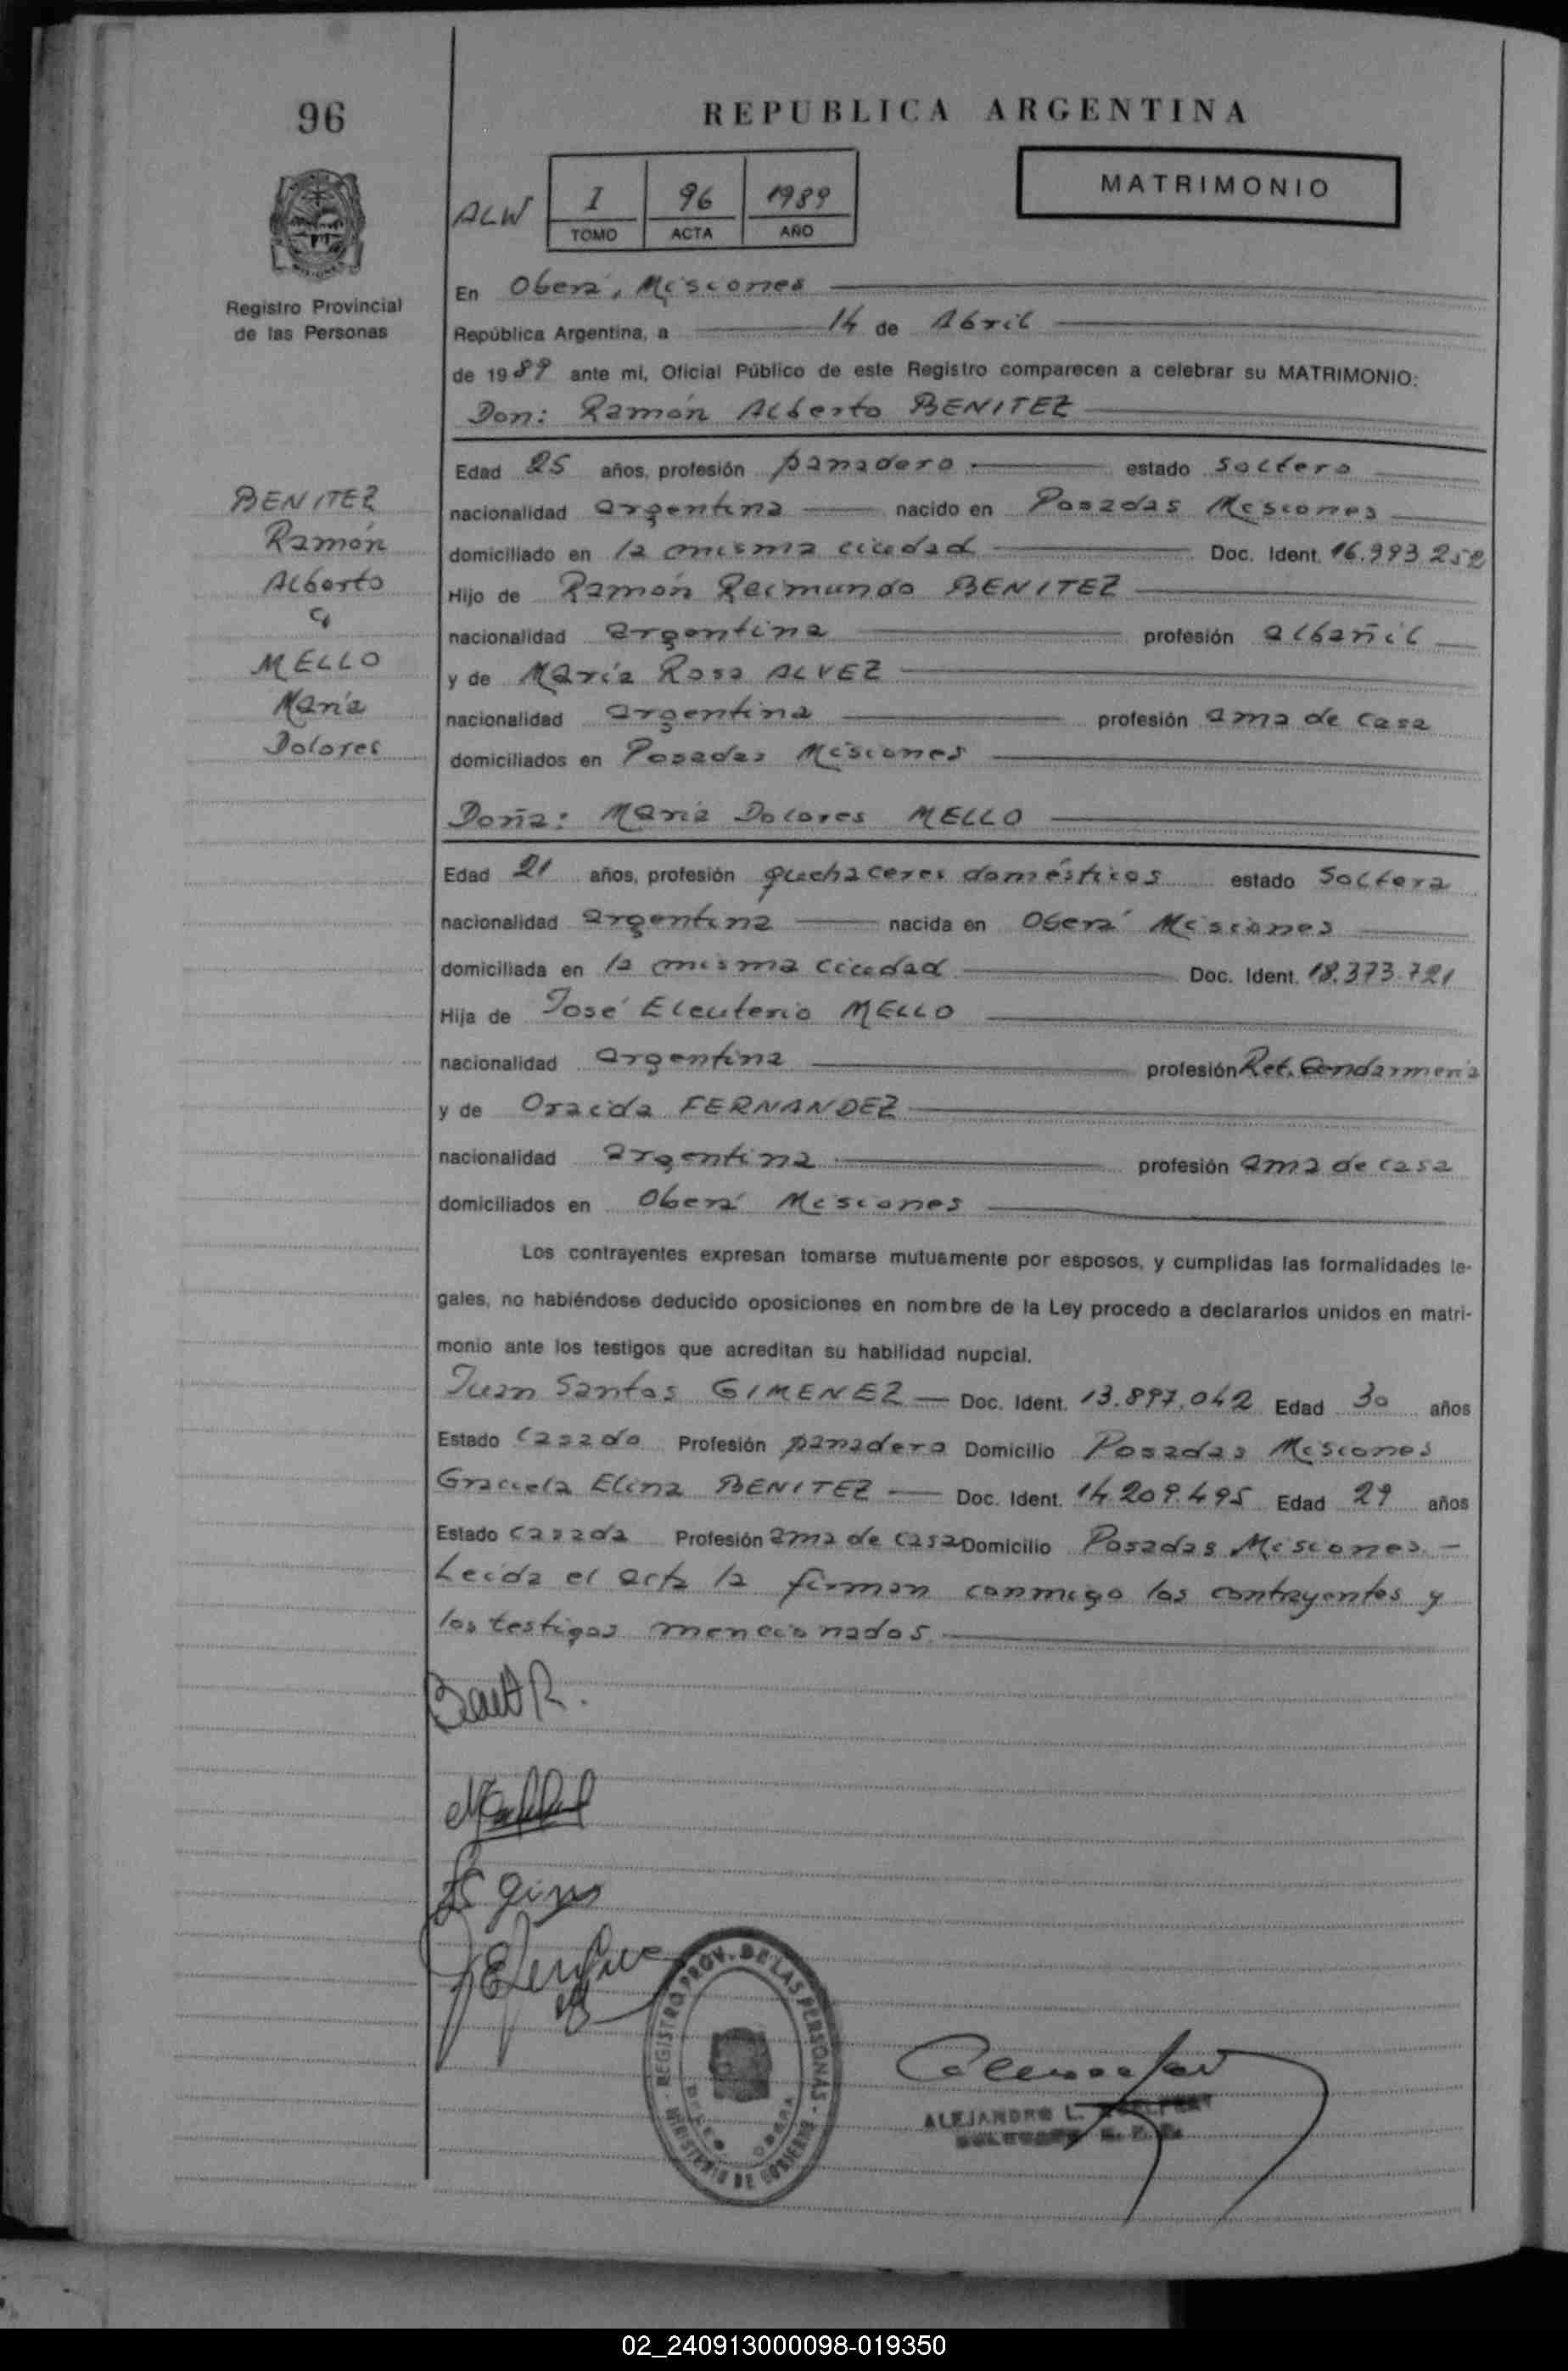 96
REPUBLICA ARGENTINA
MATRIMONIO
ALW
I 96 1989
TOMO ACTA AÑO
Registro Provincial
de las Personas
En Oberá, Misiones
República Argentina, a 14 de Abril
de 1989 ante mi, Oficial Público de este Registro comparecen a celebrar su MATRIMONIO:
Don: Ramón Alberto BENITEZ
BENITEZ
Ramón
Alberto
c/
MELLO
María
Dolores
Edad 25 años, profesión panadero estado soltero
nacionalidad argentina nacido en Posadas Misiones
domiciliado en la misma ciudad Doc. Ident. 16.993.252
Hijo de Ramón Reimundo BENITEZ
nacionalidad argentina profesión albañil
y de María Rosa ALVEZ
nacionalidad argentina profesión ama de casa
domiciliados en Posadas Misiones
Doña: María Dolores MELLO
Edad 21 años, profesión quehaceres domésticos estado Soltera
nacionalidad argentina nacida en Oberá Misiones
domiciliada en la misma ciudad Doc. Ident. 18.373.721
Hija de José Eleuterio MELLO
nacionalidad argentina profesión Ret. Gendarmería
y de Oracida FERNANDEZ
nacionalidad argentina profesión ama de casa
domiciliados en Oberá Misiones
Los contrayentes expresan tomarse mutuamente por esposos, y cumplidas las formalidades le-
gales, no habiéndose deducido oposiciones en nombre de la Ley procedo a declararlos unidos en matri-
monio ante los testigos que acreditan su habilidad nupcial.
Juan Santos GIMENEZ Doc. Ident. 13.897.042 Edad 30 años
Estado Casado Profesión panadero Domicilio Posadas Misiones
Graciela Elina BENITEZ Doc. Ident. 14.209.495 Edad 29 años
Estado casada Profesión ama de casa Domicilio Posadas Misiones
Leída el acta la firman conmigo los contrayentes y
los testigos mencionados.
REGISTRO PROV. DE LAS PERSONAS
MINISTERIO DE GOBIERNO
ALEJANDRO L.
02_240913000098-019350